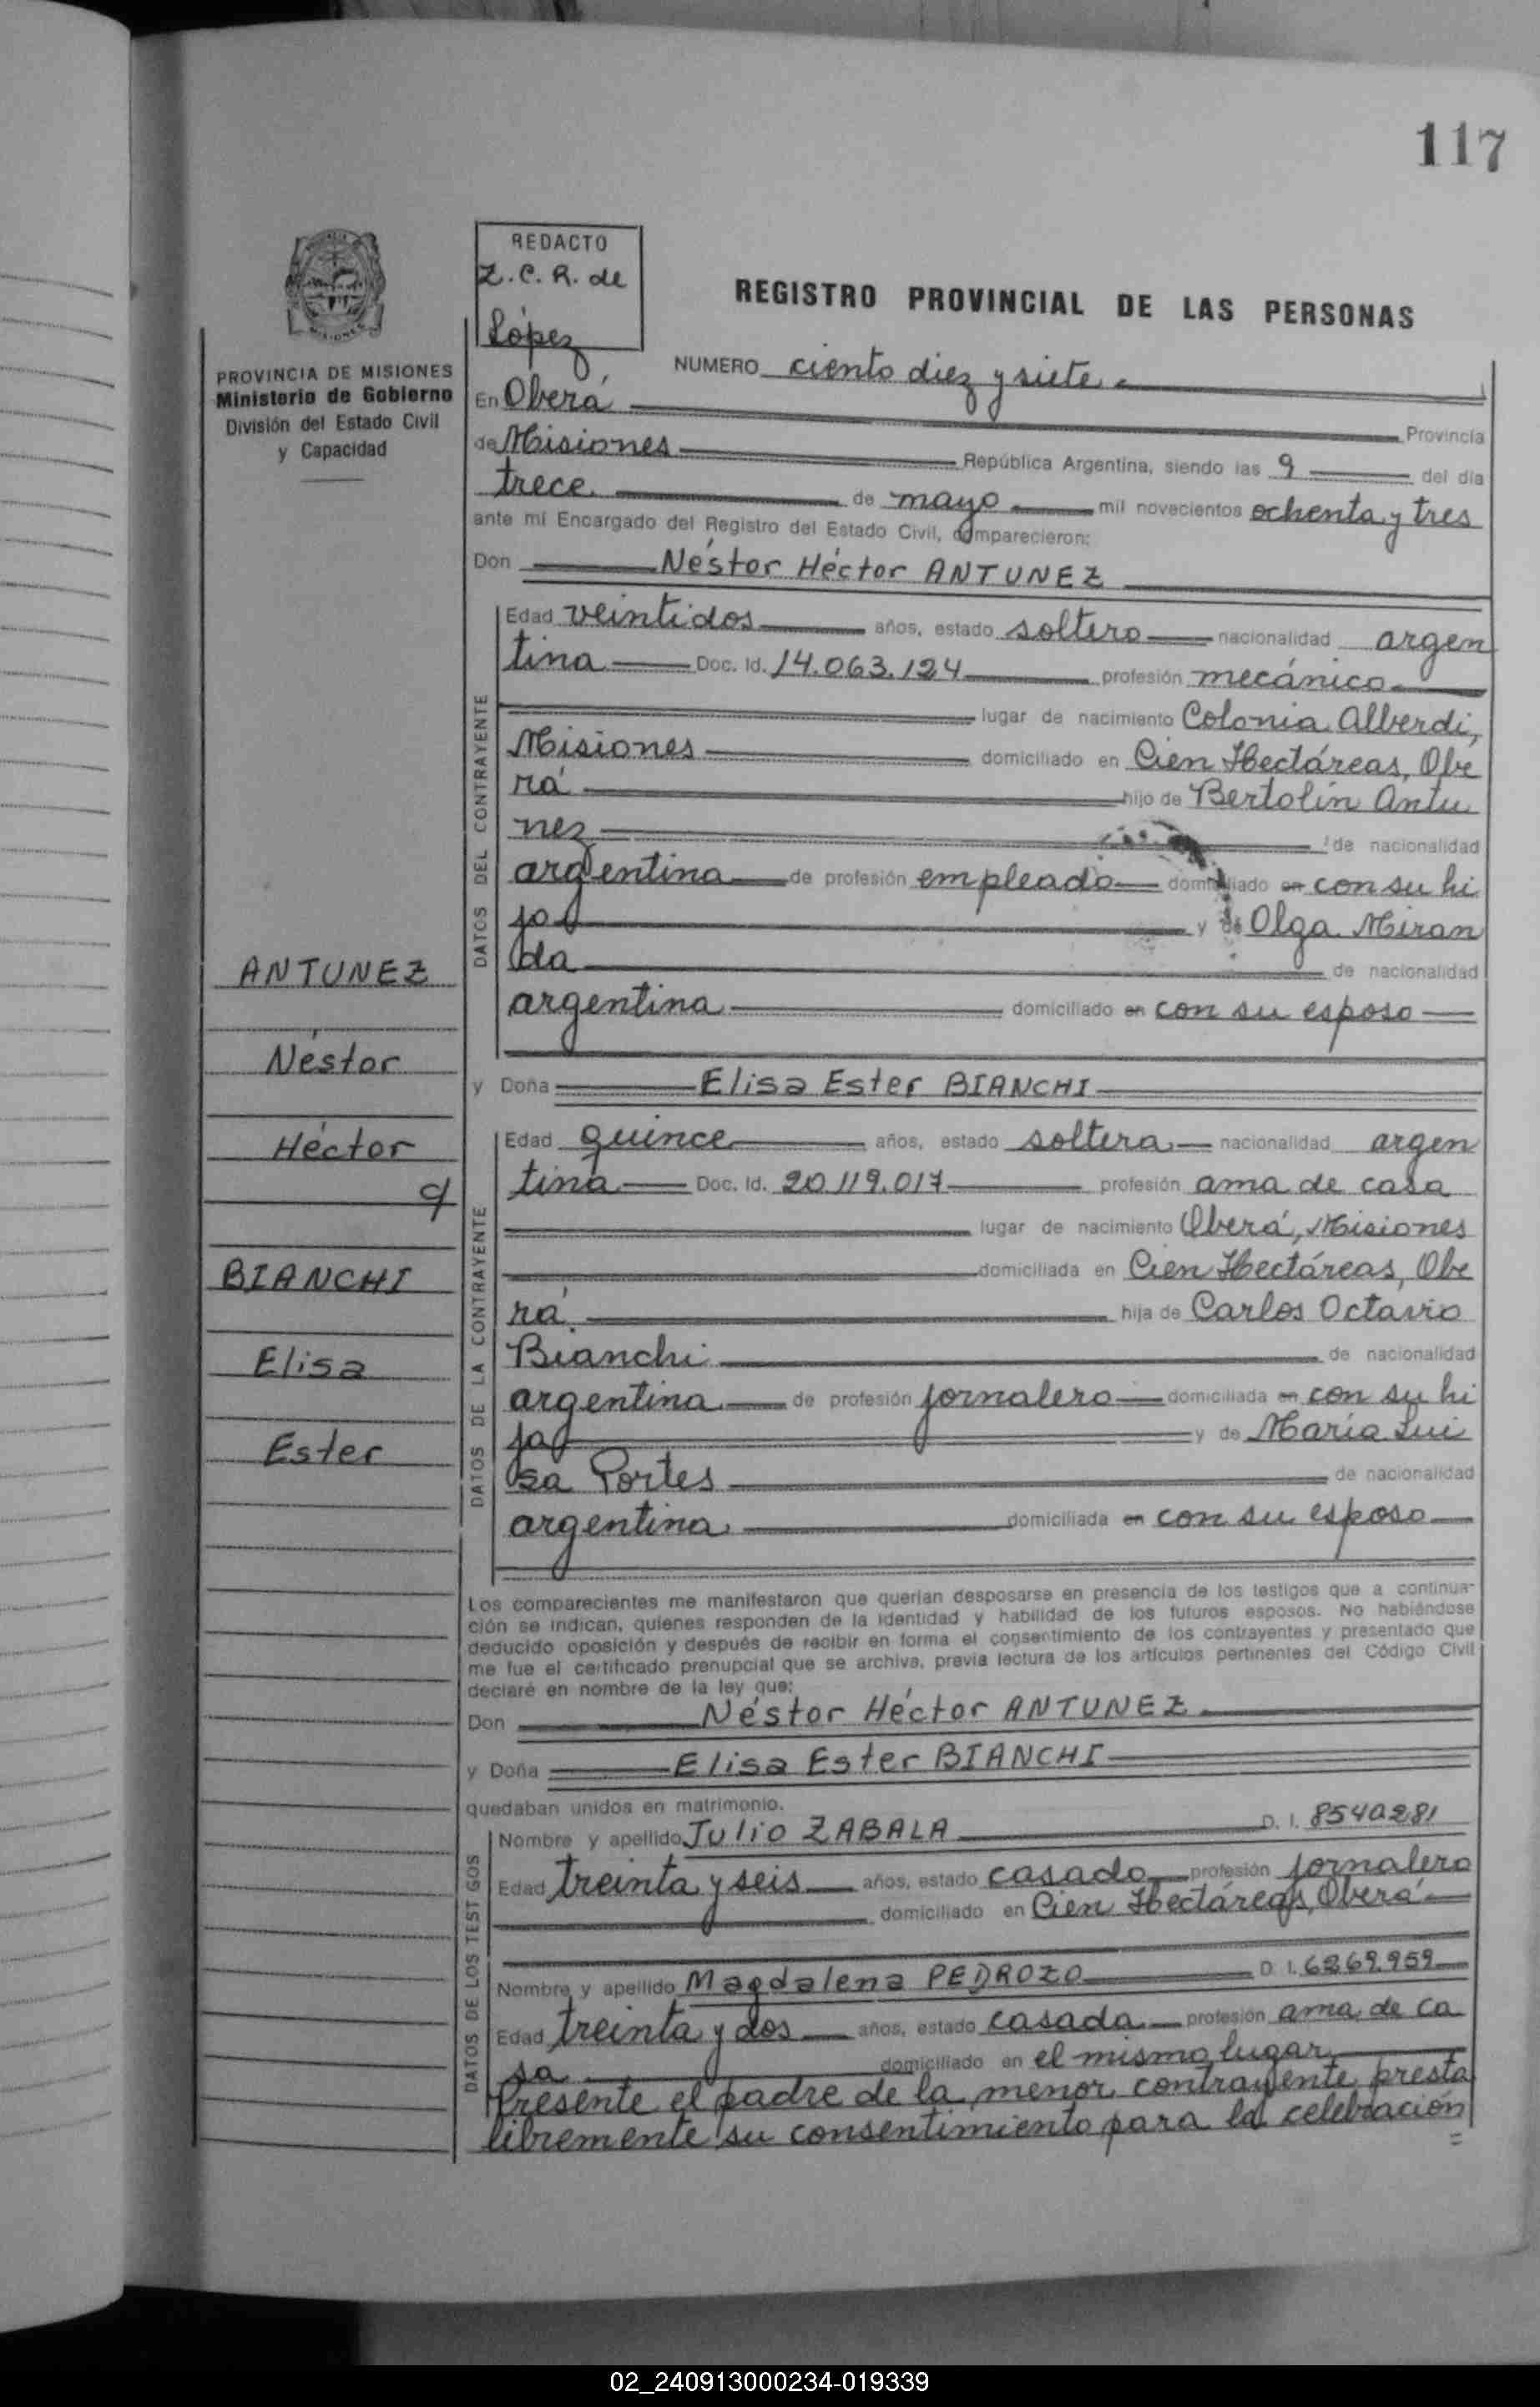 117
REDACTO
Z.C.R. de
López
REGISTRO PROVINCIAL DE LAS PERSONAS
PROVINCIA DE MISIONES
Ministerio de Gobierno
División del Estado Civil
y Capacidad
NUMERO ciento diez y siete
En Oberá Provincia
de Misiones República Argentina, siendo las 9 del día
trece de mayo mil novecientos ochenta y tres
ante mí Encargado del Registro del Estado Civil, comparecieron:
Don Néstor Héctor ANTUNEZ
DATOS DEL CONTRAYENTE
Edad veintidos años, estado soltero nacionalidad argen
tina Doc. Id. 14.063.124 profesión mecánico
lugar de nacimiento Colonia Alberdi,
Misiones domiciliado en Cien Hectáreas, Obe
rá hijo de Bertolín Antu
nez de nacionalidad
argentina de profesión empleado domiciliado en con su hi
jo y de Olga Miran
da de nacionalidad
argentina domiciliado en con su esposo
y Doña Elisa Ester BIANCHI
DATOS DE LA CONTRAYENTE
Edad quince años, estado soltera nacionalidad argen
tina Doc. Id. 20.119.017 profesión ama de casa
lugar de nacimiento Oberá, Misiones
domiciliada en Cien Hectáreas, Obe
rá. hija de Carlos Octavio
Bianchi de nacionalidad
argentina de profesión jornalero domiciliada en con su hi
ja y de María Lui
sa Portes de nacionalidad
argentina domiciliada en con su esposo
ANTUNEZ
Néstor
Héctor
y
BIANCHI
Elisa
Ester
Los comparecientes me manifestaron que querían desposarse en presencia de los testigos que a continua-
ción se indican, quienes responden de la identidad y habilidad de los futuros esposos. No habiéndose
deducido oposición y después de recibir en forma el consentimiento de los contrayentes y presentado que
me fue el certificado prenupcial que se archiva, previa lectura de los artículos pertinentes del Código Civil
declaré en nombre de la ley que:
Don Néstor Héctor ANTUNEZ
y Doña Elisa Ester BIANCHI
quedaban unidos en matrimonio.
DATOS DE LOS TESTIGOS
Nombre y apellido Julio ZABALA D. I. 8540281
Edad treinta y seis años, estado casado profesión jornalero
domiciliado en Cien Hectáreas, Oberá
Nombre y apellido Magdalena PEDROZO D. I. 6269.959
Edad treinta y dos años, estado casada profesión ama de ca
sa domiciliado en el mismo lugar
Presente el padre de la menor contrayente presta
libremente su consentimiento para la celebración
=
02_240913000234-019339